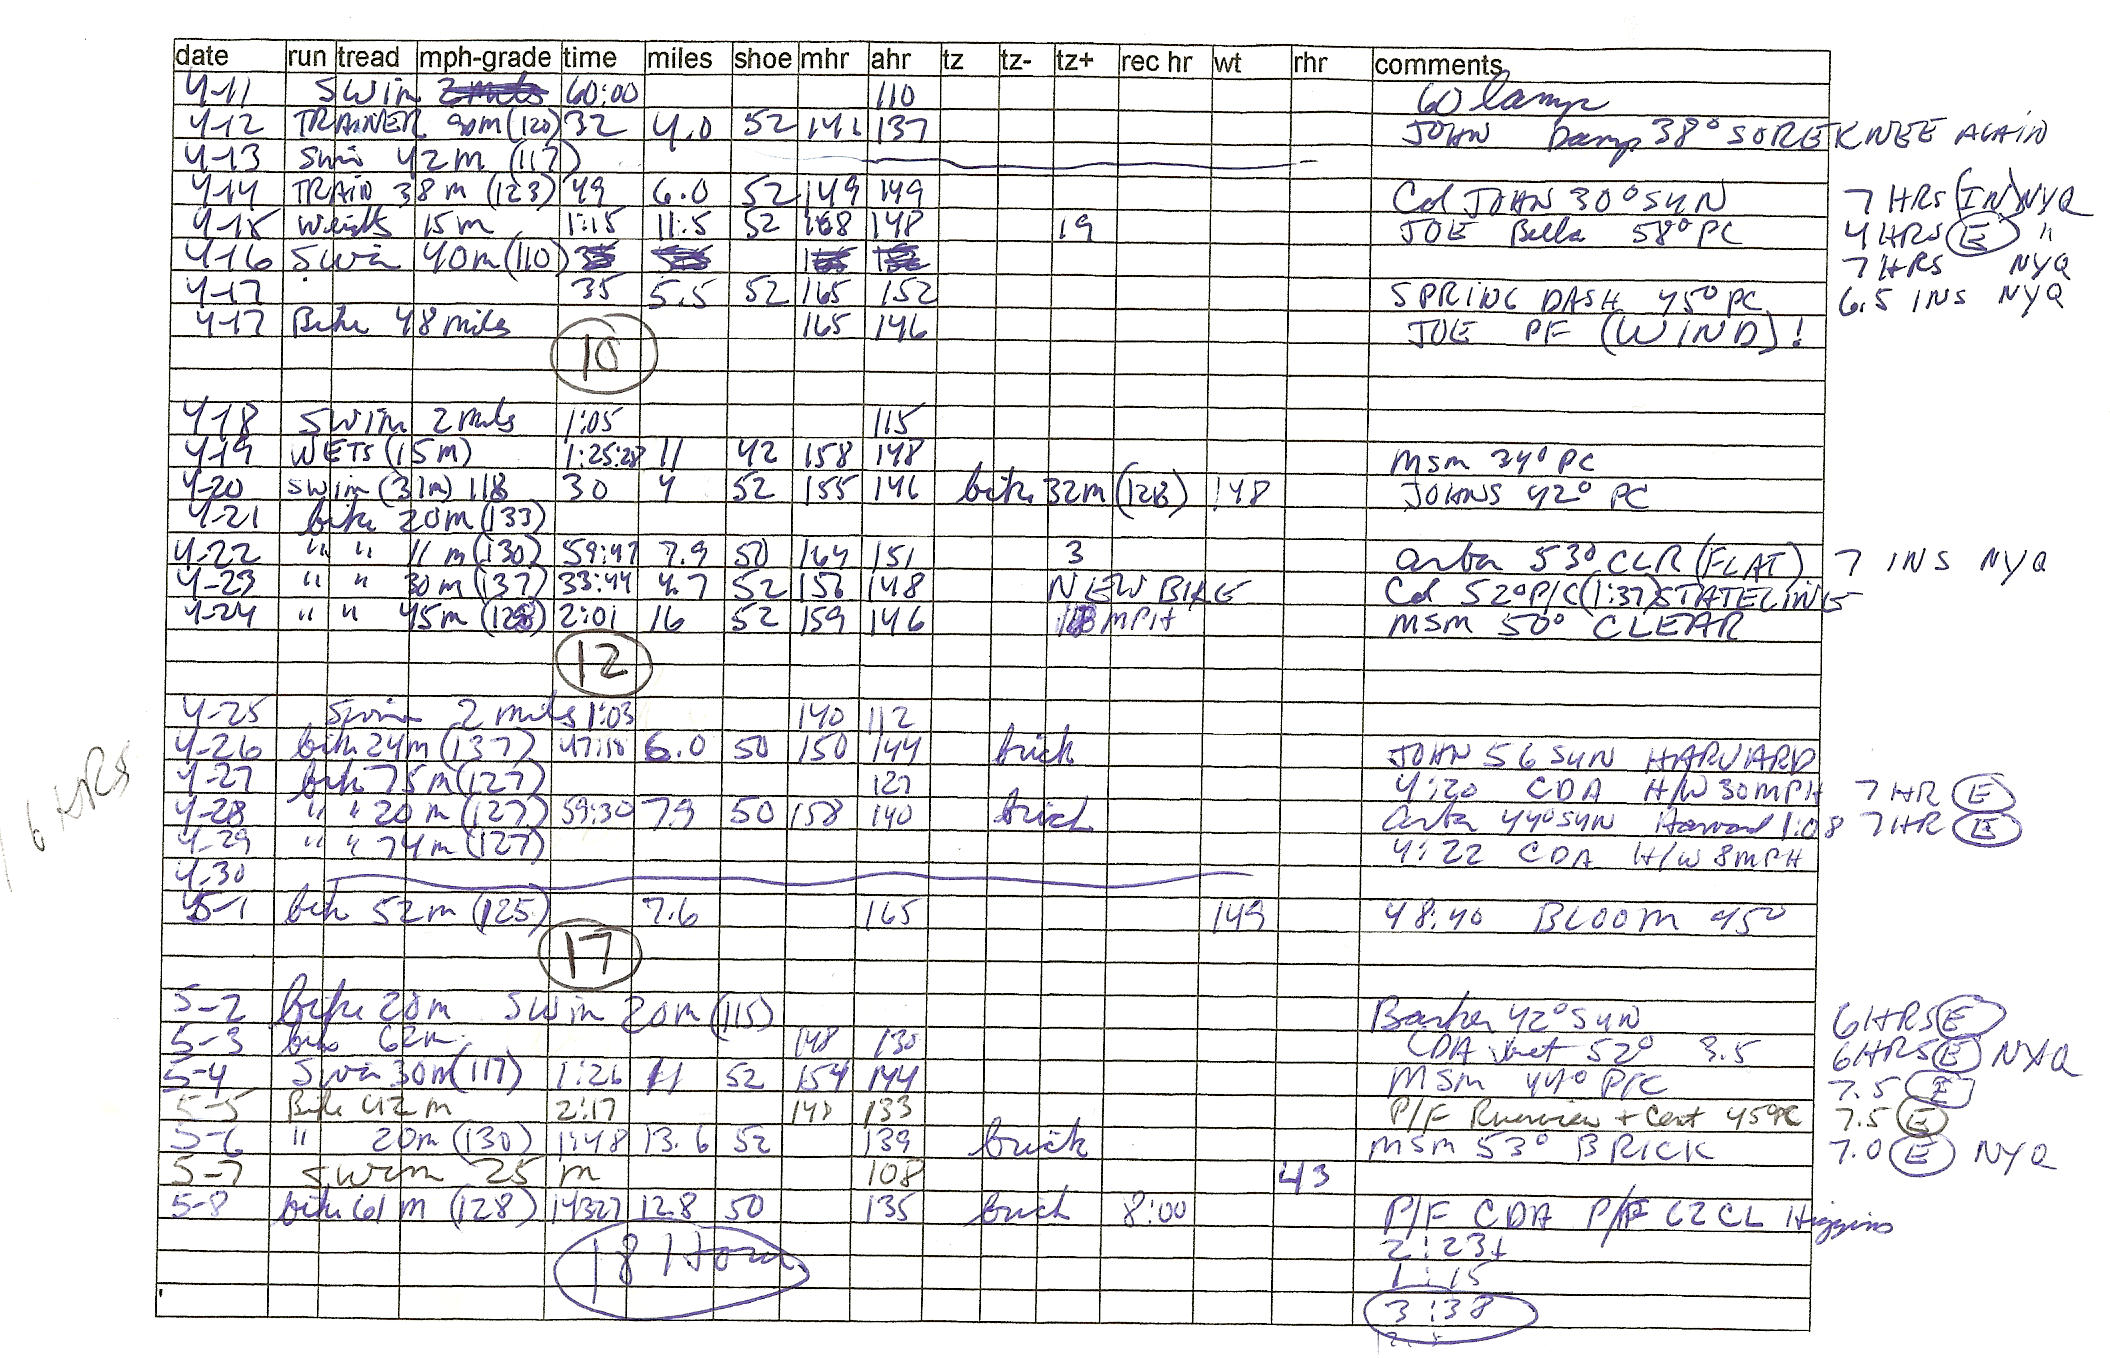 date run tread mph-grade time miles shoe mhr ahr tz tz- tz+ rec hr wt rhr comments
4-11 Swim 60:00 110 60
4-12 TRAINER 90m (120) 32 4.0 52 141 137 JOHN Damp 38° SORE KNEE AGAIN
4-13 Swim 42m (117)
4-14 TRAIN 38m (123) 49 6.0 52 149 149 Cd JOHN 30° SUN 7 HRS (IN) NYQ
4-15 Weights 15m 1:15 11.5 52 168 148 19 JOE Bella 58° PC 4 HRS E "
4-16 Swim 40m (110) 7 HRS NYQ
4-17 35 5.5 52 165 152 SPRING DASH 45° PC 6.5 INS NYQ
4-17 Bike 48 miles 165 146 JOE PF (WIND)!
10
4-18 Swim 2 miles 1:05 115
4-19 WETS (15m) 1:25:28 11 42 158 148 MSM 34° PC
4-20 swim (31m) 118 30 4 52 155 146 bike 32m (128) 148 JOHNS 42° PC
4-21 bike 20m (133)
4-22 " " 11m (130) 59:47 7.9 50 164 151 3 53° CLR (FLAT) 7 INS NYQ
4-23 " " 30m (137) 33:44 4.7 52 156 148 NEW BIKE Cd 52° P/C (1:37) STATELINE
4-24 " " 45m (128) 2:01 16 52 159 146 18 MPH MSM 50° CLEAR
12
4-25 Swim 2 miles 1:03 140 112
4-26 bike 24m (137) 47:18 6.0 50 150 144 brick JOHN 56 SUN HARVARD
4-27 bike 75m (127) 127 4:20 CDA H/W 30MPH 7 HR E
4-28 " " 20m (127) 59:30 7.9 50 158 140 brick 44° SUN Harvard 1:08 7 HR E
4-29 " " 74m (127) 4:22 CDA H/W 8MPH
16 HRS
4-30
5-1 bike 52m (125) 7.6 165 149 48:40 BLOOM 45°
17
5-2 bike 20m Swim 20m (115) Barker 42° SUN 6 HRS E
5-3 bike 62m 148 130 CDA 52° 3.5 6 HRS E NYQ
5-4 Swim 30m (117) 1:26 11 52 154 144 MSM 44° P/C 7.5 E
5-5 Bike 42m 2:17 148 133 P/F Riverview + Cent 45° PC 7.5 E
5-6 " 20m (130) 1:48 13.6 52 139 brick MSM 53° BRICK 7.0 E NYQ
5-7 Swim 25m 108 43
5-8 bike 61m (128) 14327 12.8 50 135 brick 8:00 P/F CDA P/F 62 CL Higgins
18 Hours
2:23+
1:15
3:38